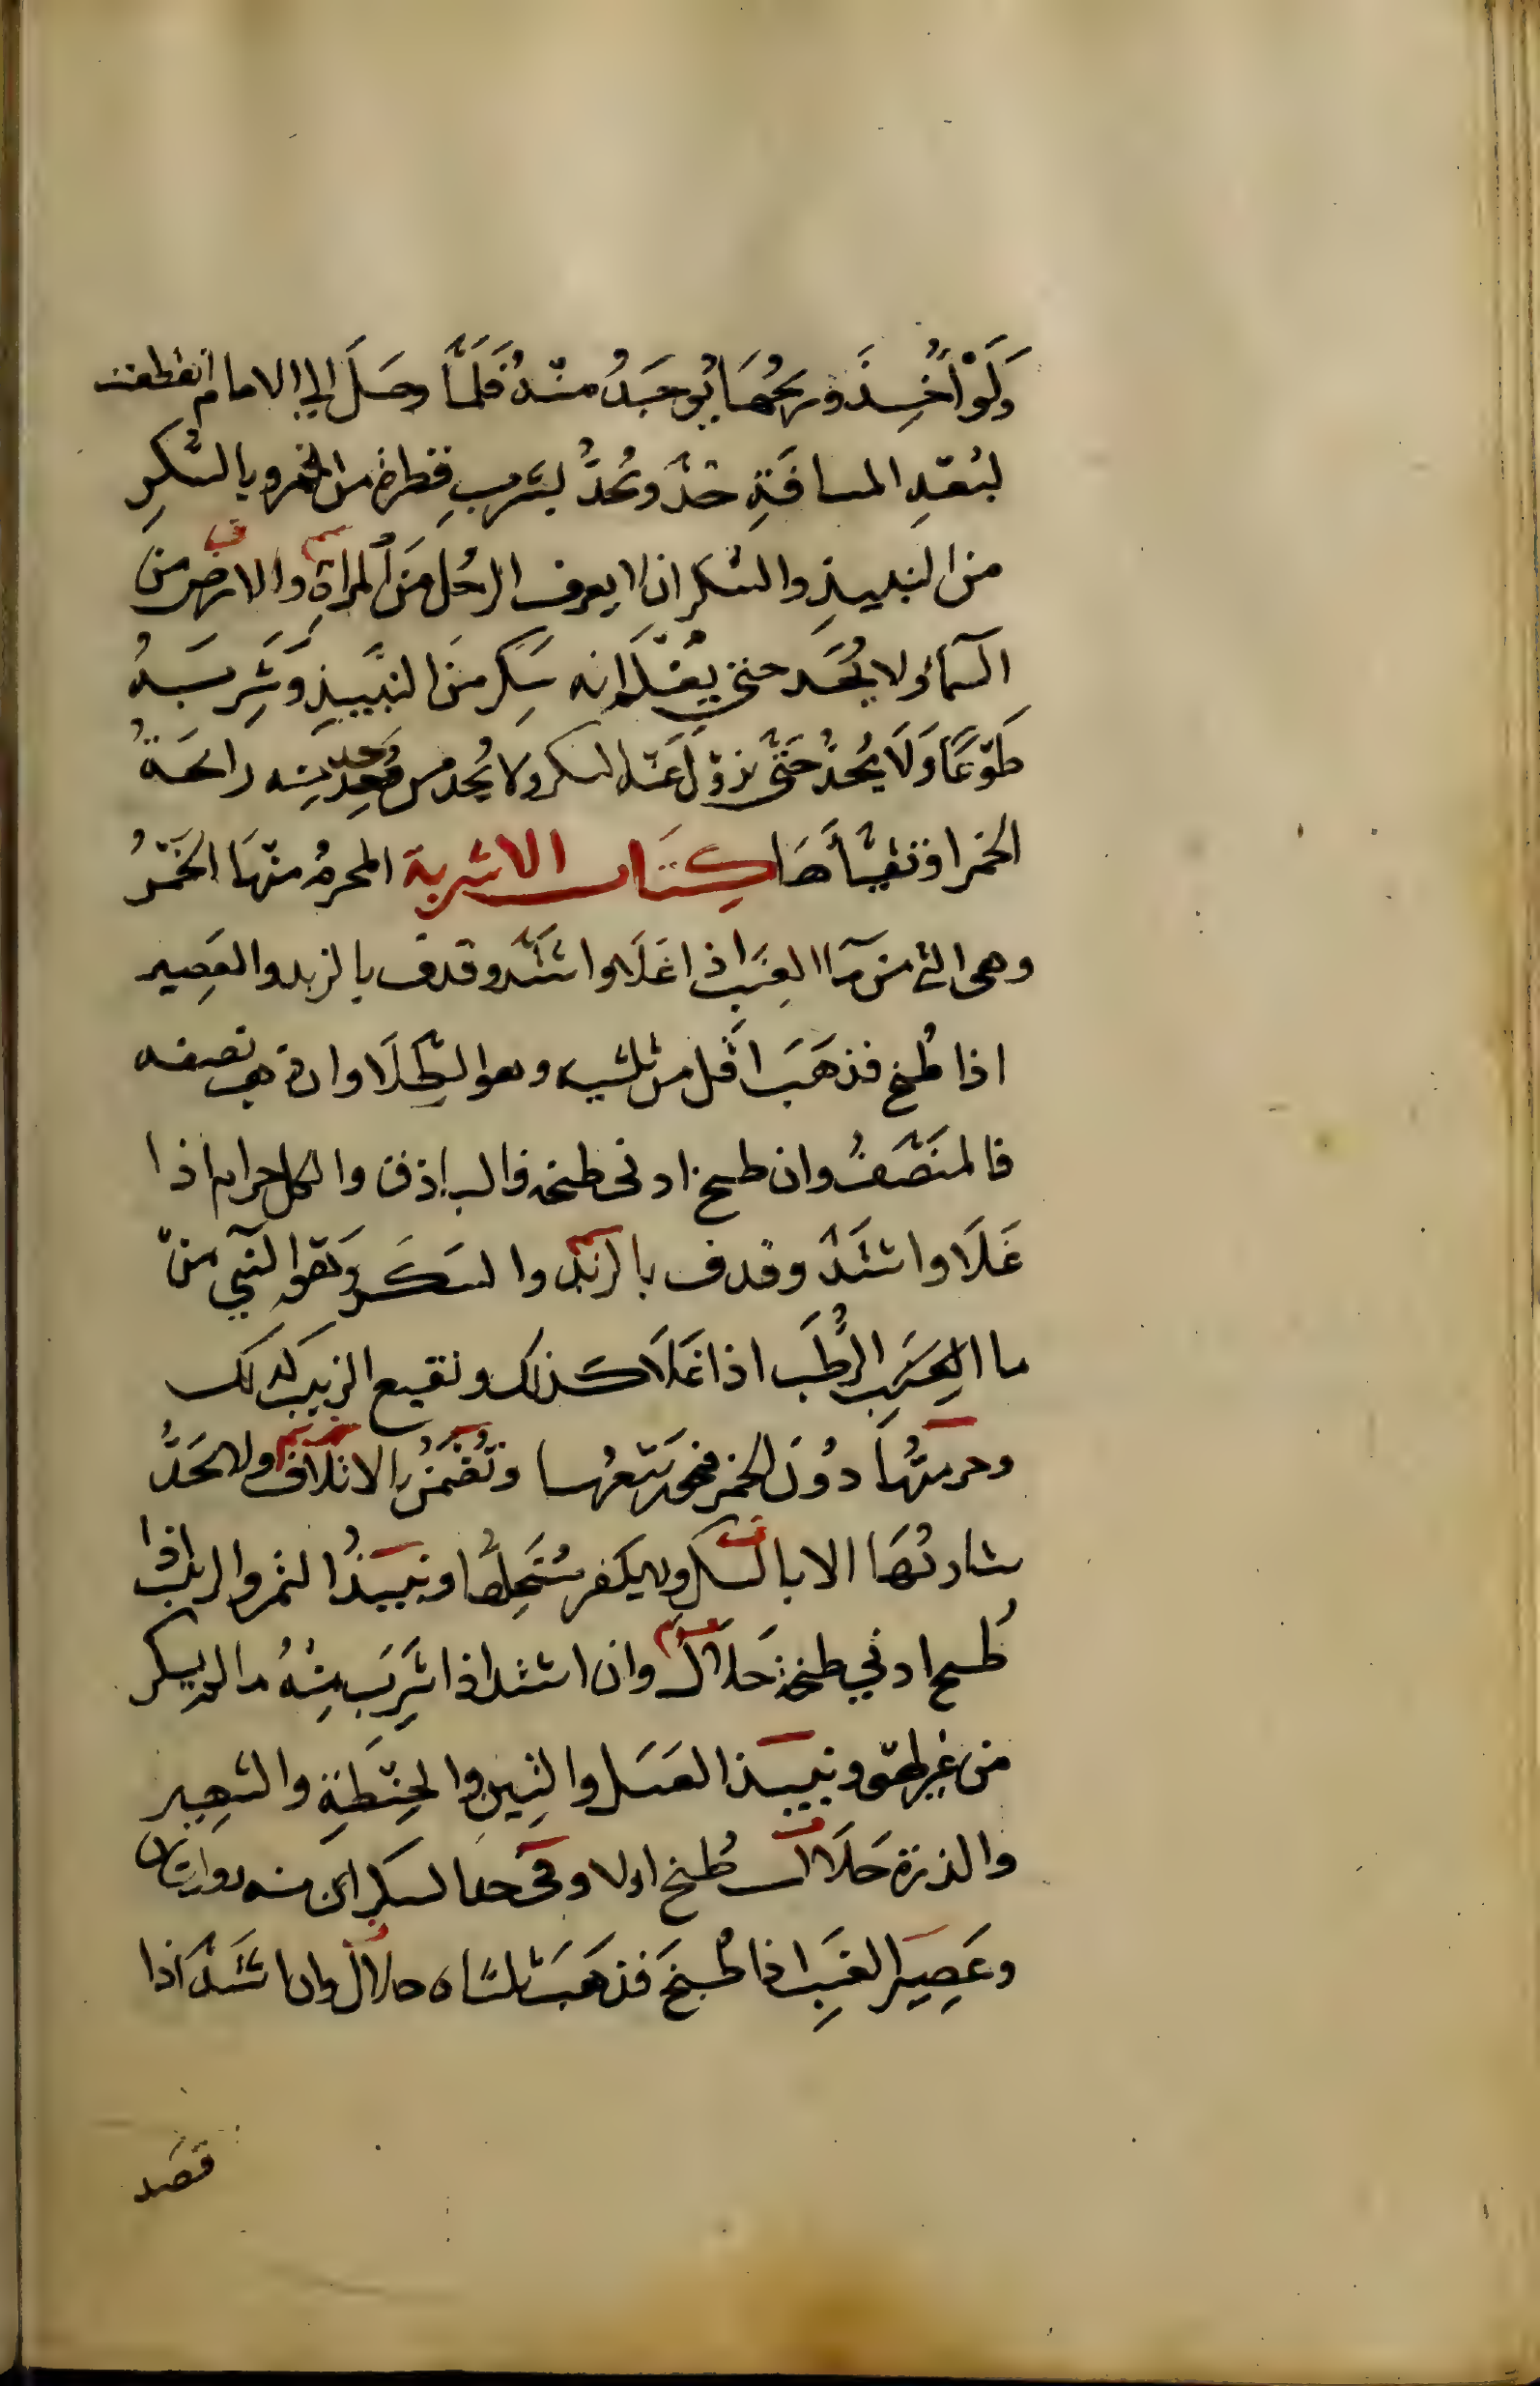 وَلَوْ أُخِذَ وريحُهَا يُوجَدُ منْهُ فَلَمَّا وصَلَ الي الامام انقطعت
لبُعْدِ المسافَةِ حُدَّ وَيُحَدُّ بشربِ قطرة من الخمر وبالسُّكرِ
من النبيذِ والسكران لا يعرف الرجُل مِنَ المرأةِ والارض من
السَّمآء ولا يُحَد حتى يُعْلَم انه سَكِر منَ النَّبيذِ وَشَرِبَهُ
طَوْعًا وَلَا يُحَدُّ حَتَّى يزوْلَ عَنْه السكر ولا يُحد من وُجدَ منه رائحَةُ
الخمر او تقيَّأَهَا كِتَاب الاشربة المحرمُ منْهَا الخَمْرُ
وهي الني من مآ العِنَبِ اذا غَلَا واشتَدَّ وقذف بالزبد والعَصِير
اذا طُبخ فذهَبَ اقَل من ثلثيه وهو الطِّلَا وان ذهب نصفه
فالمنَصَّفُ وان طبخ ادنى طبخه فالباذق والكل حرام اذا
غَلَا واشتَدَّ وقذف بالزبد والسَكَر وَهو النَّي منْ
ما الرُّطَب اذا غَلَا كذلك ونقيع الزبيب كذلك
وحرمتُهَا دُوْنَ الخمر فيجوز بيعُها وتُضْمَنُ بالاتلاف ولا يُحَدُّ
شاربُهَا الا بالسكر ولا يكفر مُسْتَحِلُّهَا ونبيذُ التمر والزبيب اذا
طُبخ ادني طبخة حَلَالٌ وان اشتد اذا شَرِبَ مِنْهُ ما لم يسكر
من غير لهْوٍ ونبيذ العَسَل والتِّيْنِ والحِنْطَةِ والشَعِير
والذرة حَلَال طُبخ اولا وفي حد السكران منه روايتان
وعَصِيرُ العنَبِ اذا طُبِخَ فذهَبَ ثلثاه حلال وان اشتَدَّ اذا
قصد